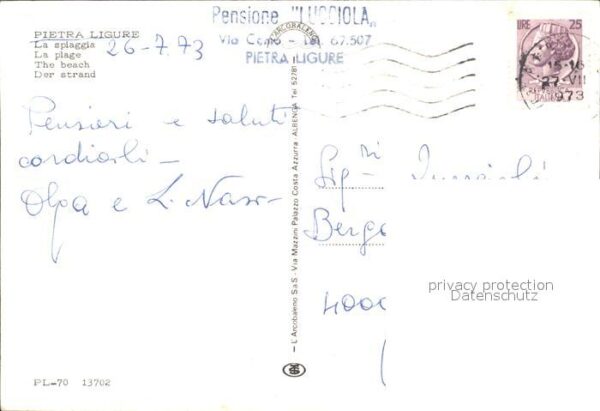 PIETRA LIGURE
La spiaggia
La plage
The beach
Der strand
26-7.73
Pensione "LUCCIOLA"
Via Cerio - Tel. 67.507
PIETRA LIGURE
LIRE 25
15-16
27·VII
1973
Pensieri e saluti
cordiali -
Olga e L. Nas
L'Arcobaleno S.a.S - Via Mazzini Palazzo Costa Azzurra - ALBENGA Tel. 52781
Sig.ri
Berg
4000
privacy protection
Datenschutz
PL-70 13702